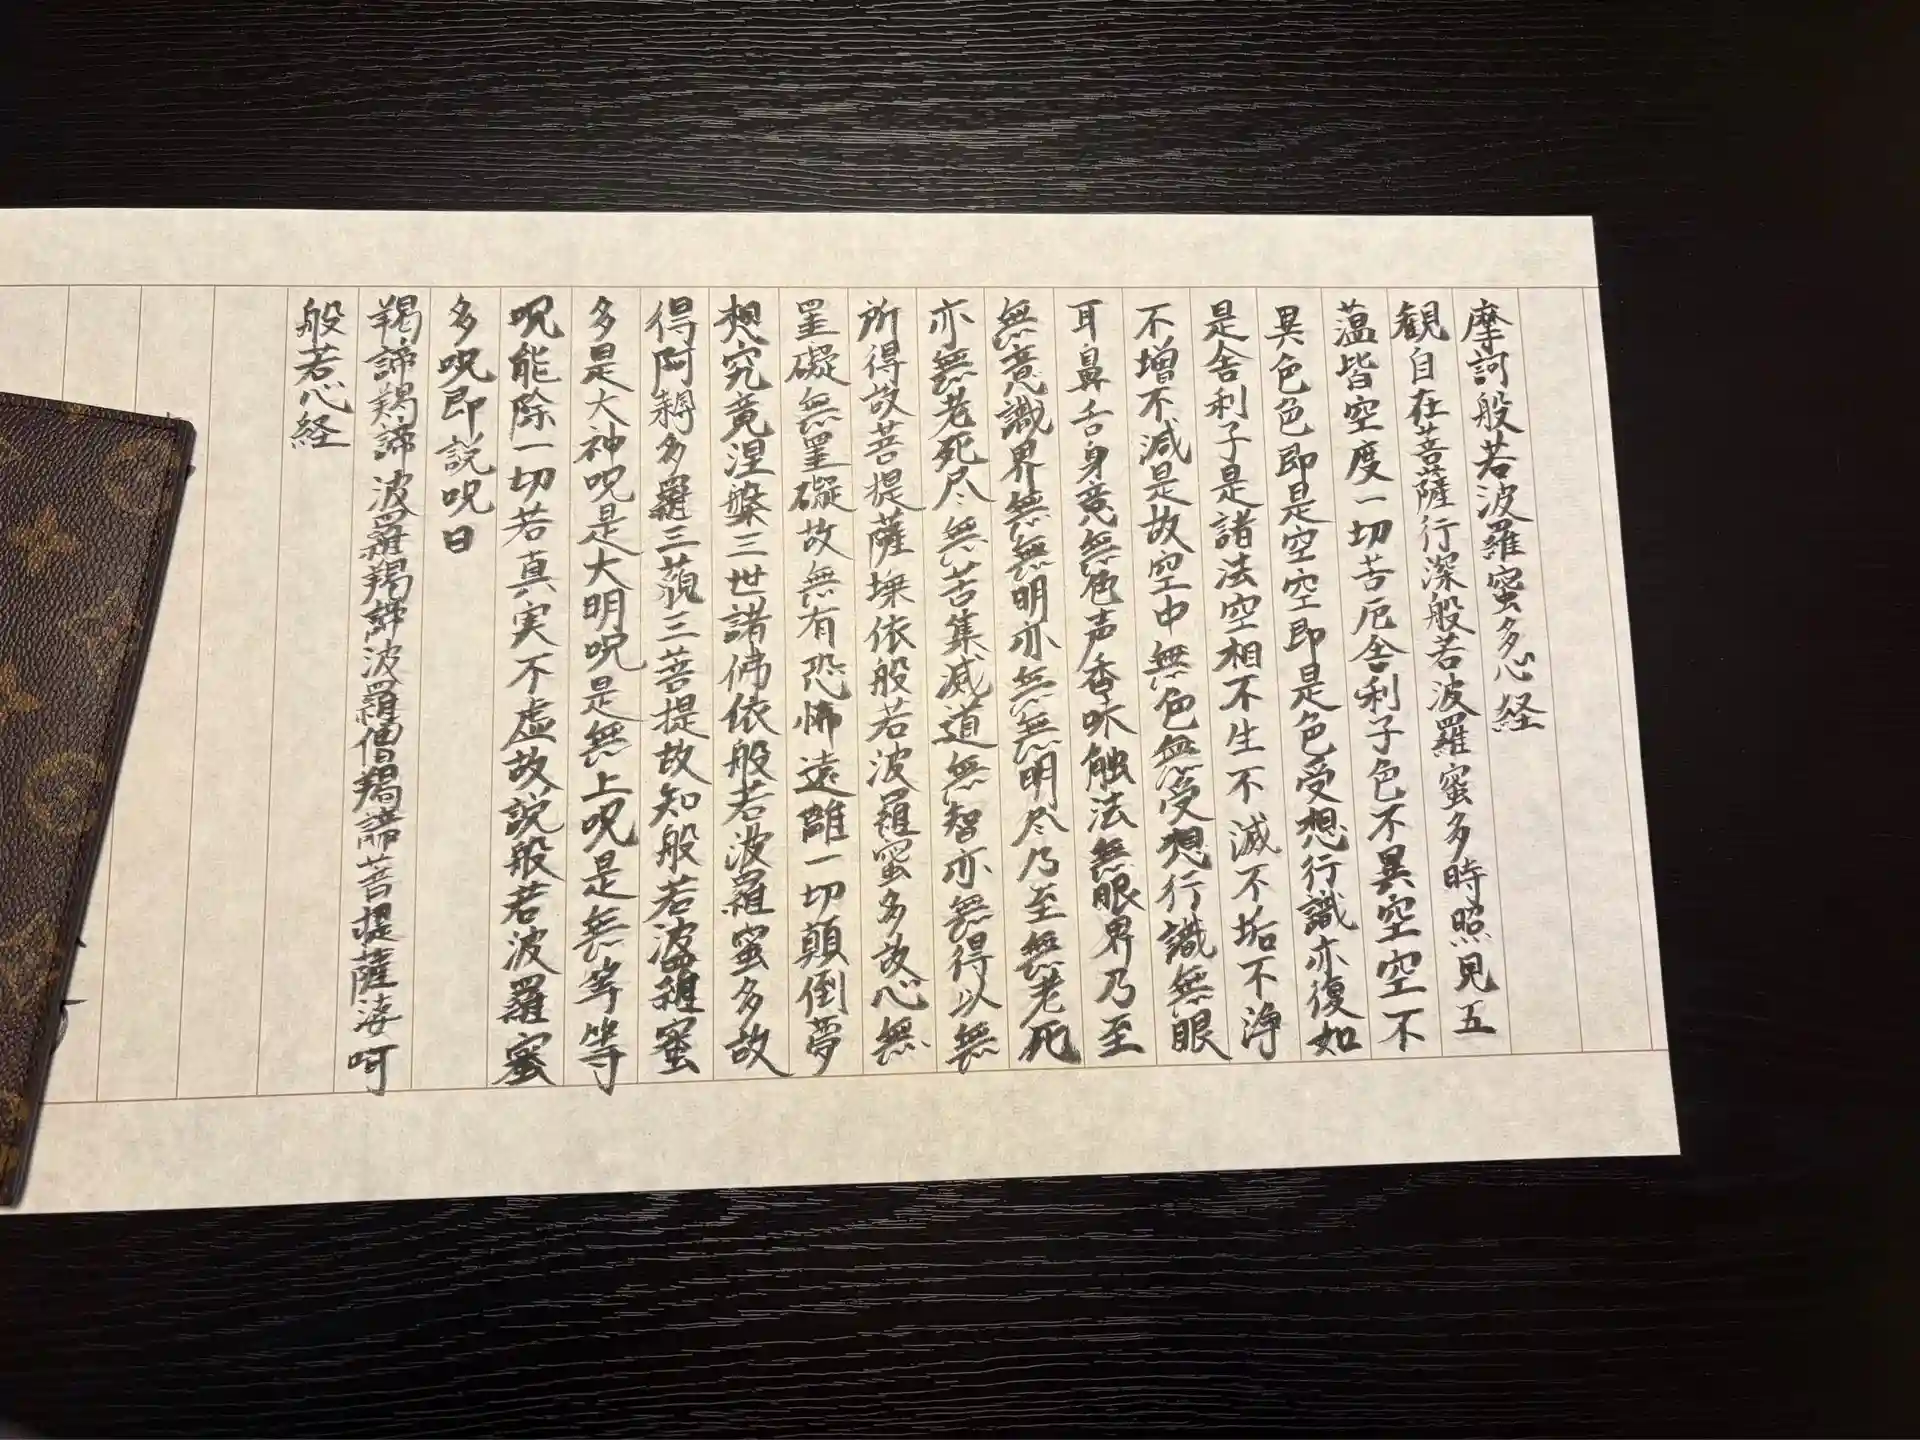 摩訶般若波羅蜜多心経
観自在菩薩行深般若波羅蜜多時照見五
蕰皆空度一切苦厄舎利子色不異空空不
異色色即是空空即是色受想行識亦復如
是舎利子是諸法空相不生不滅不垢不浄
不増不減是故空中無色無受想行識無眼
耳鼻舌身意無色声香味触法無眼界乃至
無意識界無無明亦無無明尽乃至無老死
亦無老死尽無苦集滅道無智亦無得以無
所得故菩提薩埵依般若波羅蜜多故心無
罣礙無罣礙故無有恐怖遠離一切顛倒夢
想究竟涅槃三世諸佛依般若波羅蜜多故
得阿耨多羅三藐三菩提故知般若波羅蜜
多是大神呪是大明呪是無上呪是無等等
呪能除一切苦真実不虚故説般若波羅蜜
多呪即説呪曰
羯諦羯諦波羅羯諦波羅僧羯諦菩提薩婆呵
般若心経